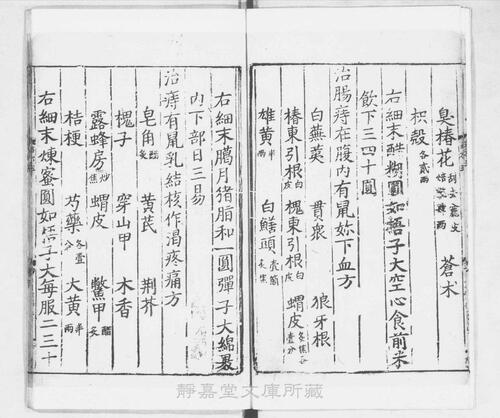 臭椿花 蒼朮
枳殼各貳兩
右細末醋糊圓如梧子大空心食前米
飲下三四十圓
治腸痔在腹內有鼠妳下血方
白蕪荑 貫衆 狼牙根
椿東引根白皮 槐東引根白皮 蝟皮
雄黃半兩 白鱔頭
右細末臈月猪脂和一圓彈子大綿裹
內下部日三易
治痔有鼠乳結核作渴疼痛方
皂角炙 黃芪 荆芥
槐子 穿山甲 木香
露蜂房炒焦 蝟皮炙 鱉甲醋炙
桔梗 芍藥各壹分 大黃半兩
右細末煉蜜圓如梧子大每服二三十
靜嘉堂文庫所藏